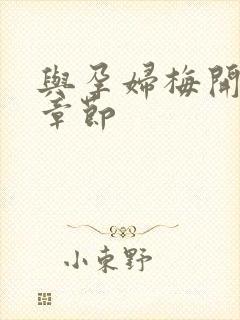 與孕婦梅開
章節
小東野